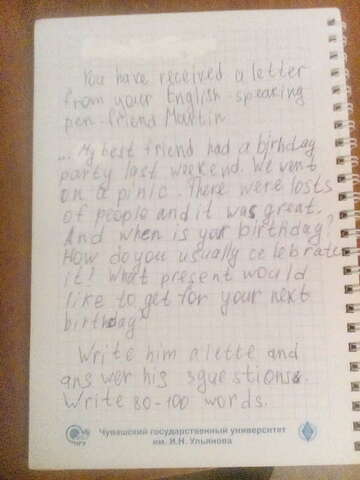 You have received a letter
from your English-speaking
pen-friend Martin
... My best friend had a birhday
party last weekend. We went
on a pinic. There were losts
of people and it was great.
And when is your birthday?
How do you usually celebrate
it? What present would
like to get for your next
birthday?
Write him a lette and
answer his 3questions.
Write 80-100 words.
Чувашский государственный университет
им. И.Н. Ульянова